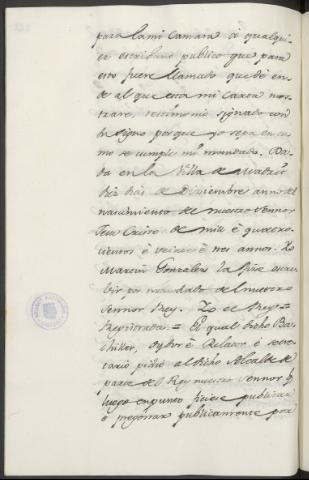 para la mi Camara à qualqui-
er escribano publico que para
esto fuere llamado que dè en-
de al que esta mi Carta mos-
trare, testimonio signado con
su signo porque yo sepa en co-
mo se cumple mi mandado. Da-
da en la Villa de
diez dias de Diciembre, anno del
nascimiento de nuestro Sennor
Jesu Cristo de mil è quatro-
cientos è veinte è tres annos. Yo
Martin Gonzalez la fize escri-
bir por mandado de nuestro
Sennor Rey. Yo el Rey=
Registrada.= El qual dicho Ba-
chiller, Oydor è Relator è secre-
tario pidiò al dicho Alcalde de
parte del Rey nuestro Sennor q
luego en punto ficiese publicar
è pregonar publicamente por